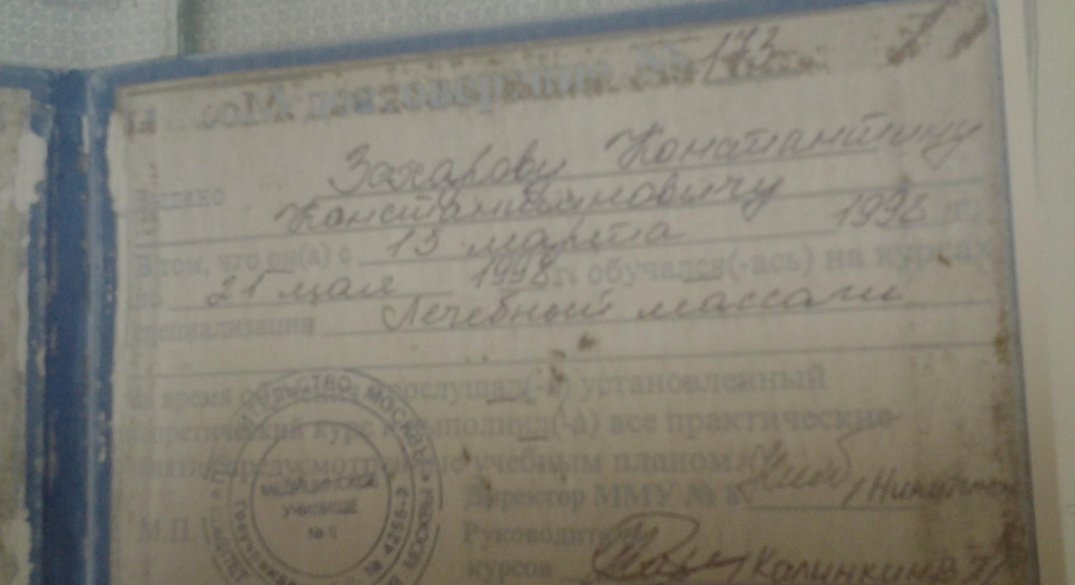 173
Выдано Захарову Константину
Константиновичу
В том, что он(а) с 13 марта 1998 г.
по 21 мая 1998 г. обучался(-ась) на курсах
специализации Лечебный массаж
За время обучения прослушал(-а) установленный
теоретический курс и выполнил(-а) все практические
занятия, предусмотренные учебным планом.
Директор ММУ № 8
М.П. Руководитель
курсов Калинкина
МЕДИЦИНСКОЕ
УЧИЛИЩЕ
№ 8
ПРАВИТЕЛЬСТВО МОСКВЫ
№ 4255-2